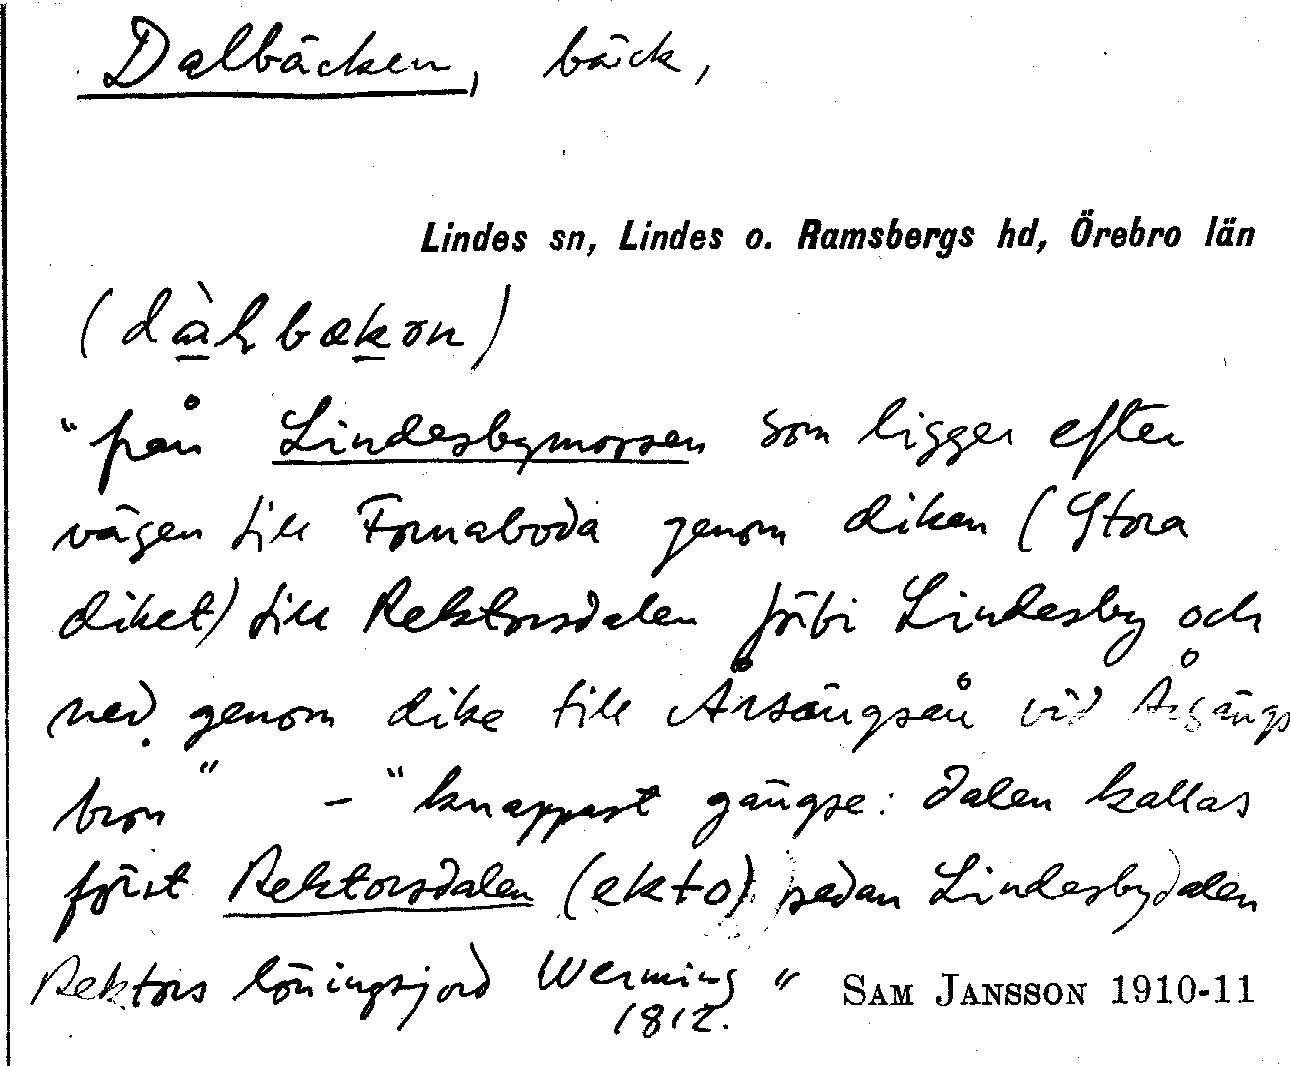 Dalbäcken, bäck,
Lindes sn, Lindes o. Ramsbergs hd, Örebro län
"från Lindesbymossen som ligger efter
vägen till Fornaboda genom diken (Stora
diket) till Rektorsdalen förbi Lindesby och
ned genom dike till Årsångsån vid
bron" – "knappast gängse: dalen kallas
först Rektorsdalen (ekto) sedan Lindesbydalen
Rektors löningsjord Werming" SAM JANSSON 1910-11
1812.